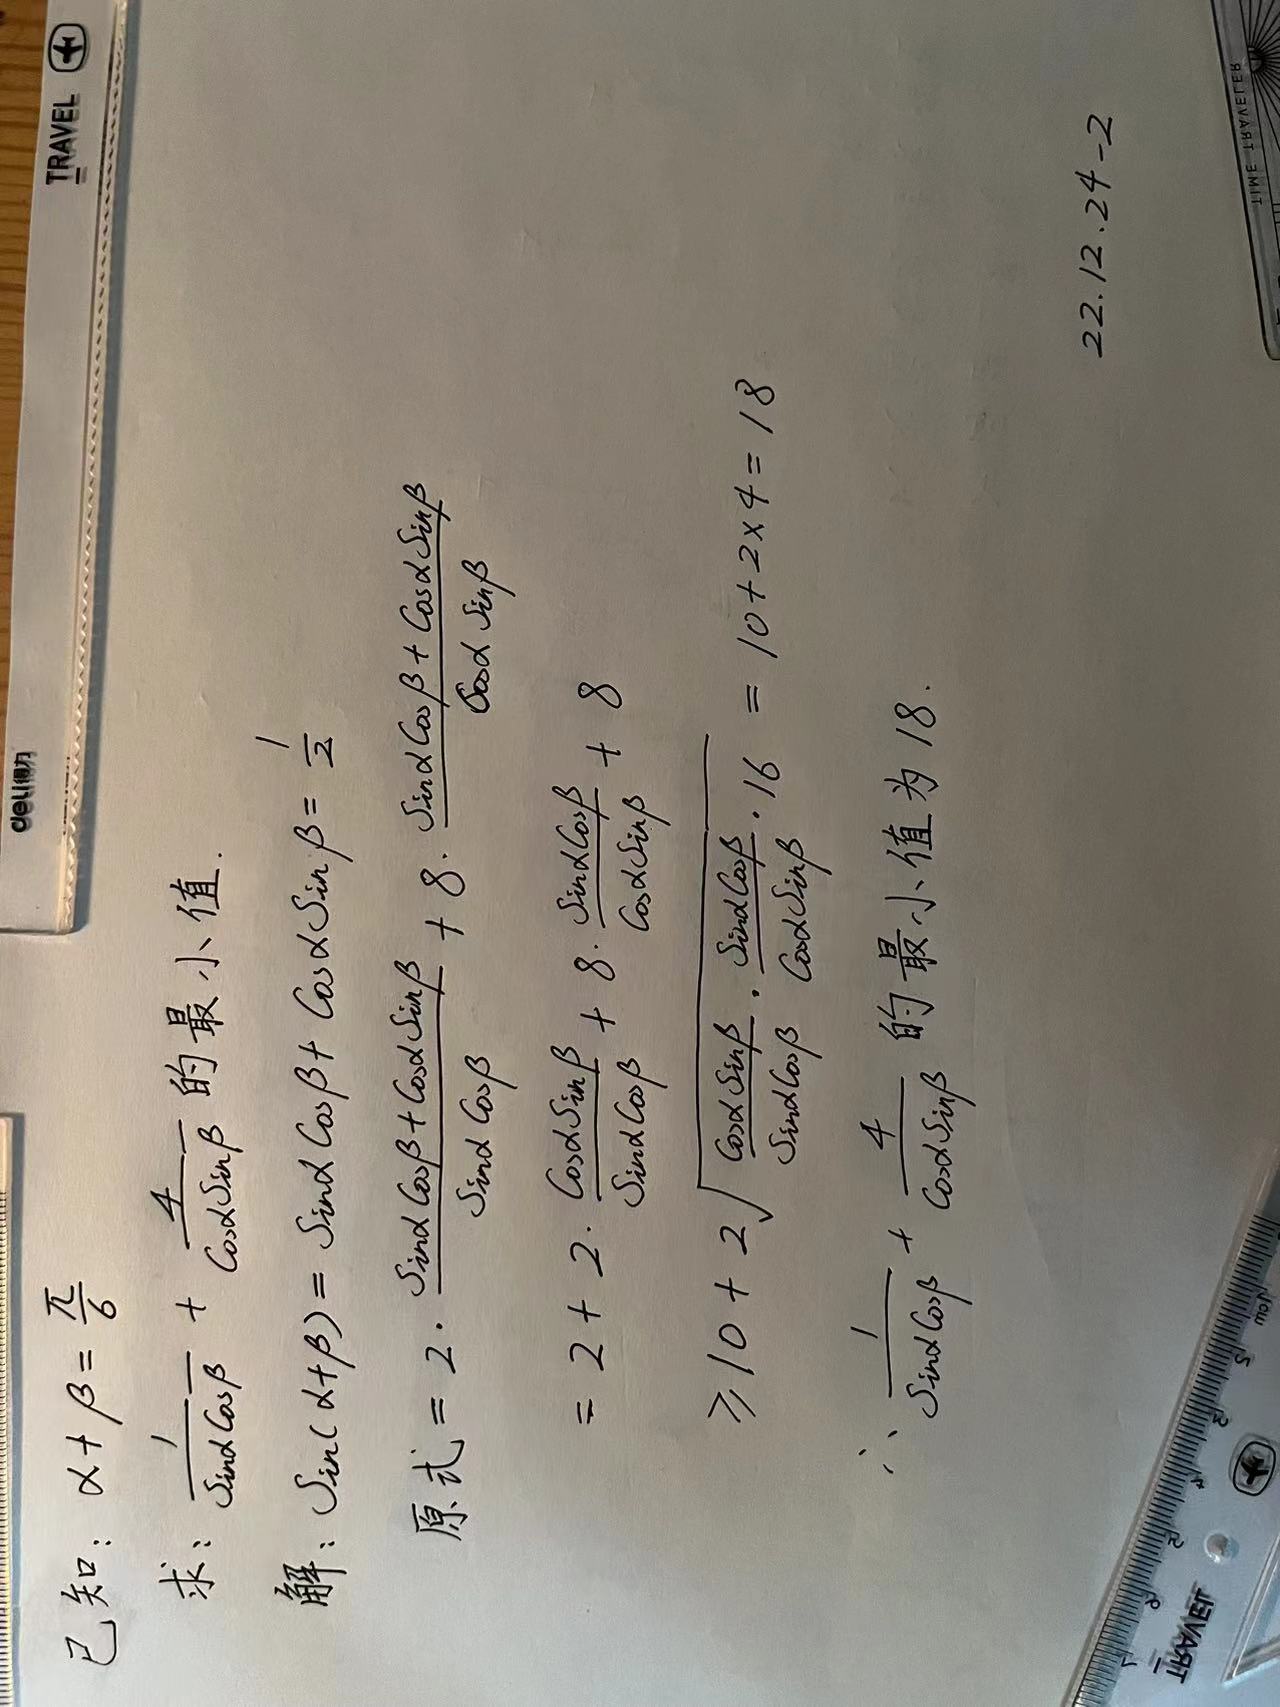 deli得力
TRAVEL
已知: α+β=π/6
求: 1/(Sinα Cosβ) + 4/(Cosα Sinβ) 的最小值.
解: Sin(α+β)= Sinα Cosβ+ Cosα Sinβ= 1/2
原式 = 2· (Sinα Cosβ+Cosα Sinβ)/(Sinα Cosβ) + 8· (Sinα Cosβ + Cosα Sinβ)/(Cosα Sinβ)
= 2 + 2· (Cosα Sinβ)/(Sinα Cosβ) + 8· (Sinα Cosβ)/(Cosα Sinβ) + 8
≥10 + 2√((Cosα Sinβ)/(Sinα Cosβ) · (Sinα Cosβ)/(Cosα Sinβ) ·16) = 10+2×4=18
∴ 1/(Sinα Cosβ) + 4/(Cosα Sinβ) 的最小值为18.
22.12.24-2
7 6 5 4 3 2 1cm
TRAVEL
TIME TRAVELER